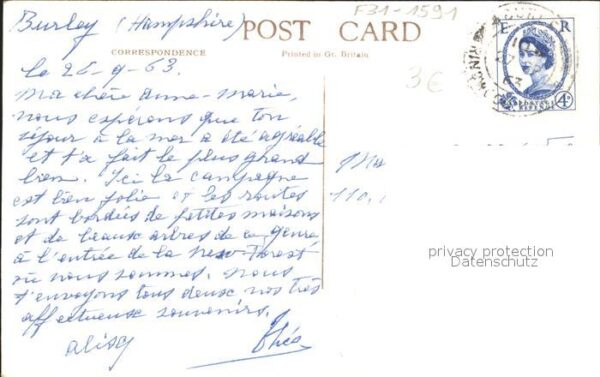 Burley (Hampshire)
F31-1591
POST CARD
CORRESPONDENCE
Printed in Gt. Britain
3€
E R
4D
le 26-9-63.
Ma chère Anne-Marie,
nous espérons que ton
séjour à la mer a été agréable
et t'a fait le plus grand
bien. Ici la campagne
est bien jolie et les routes
sont bordées de petites maisons
et de beaux arbres de ce genre
à l'entrée de la New-Forest
où nous sommes. Nous
t'envoyons tous deux nos très
affectueux souvenirs.
110,
privacy protection
Datenschutz